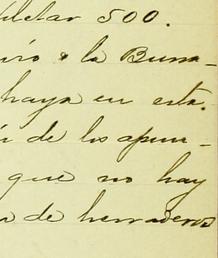 completar 500.
uiro a la Buna-
haya en esta.
de los apun-
que no hay
de herraderos